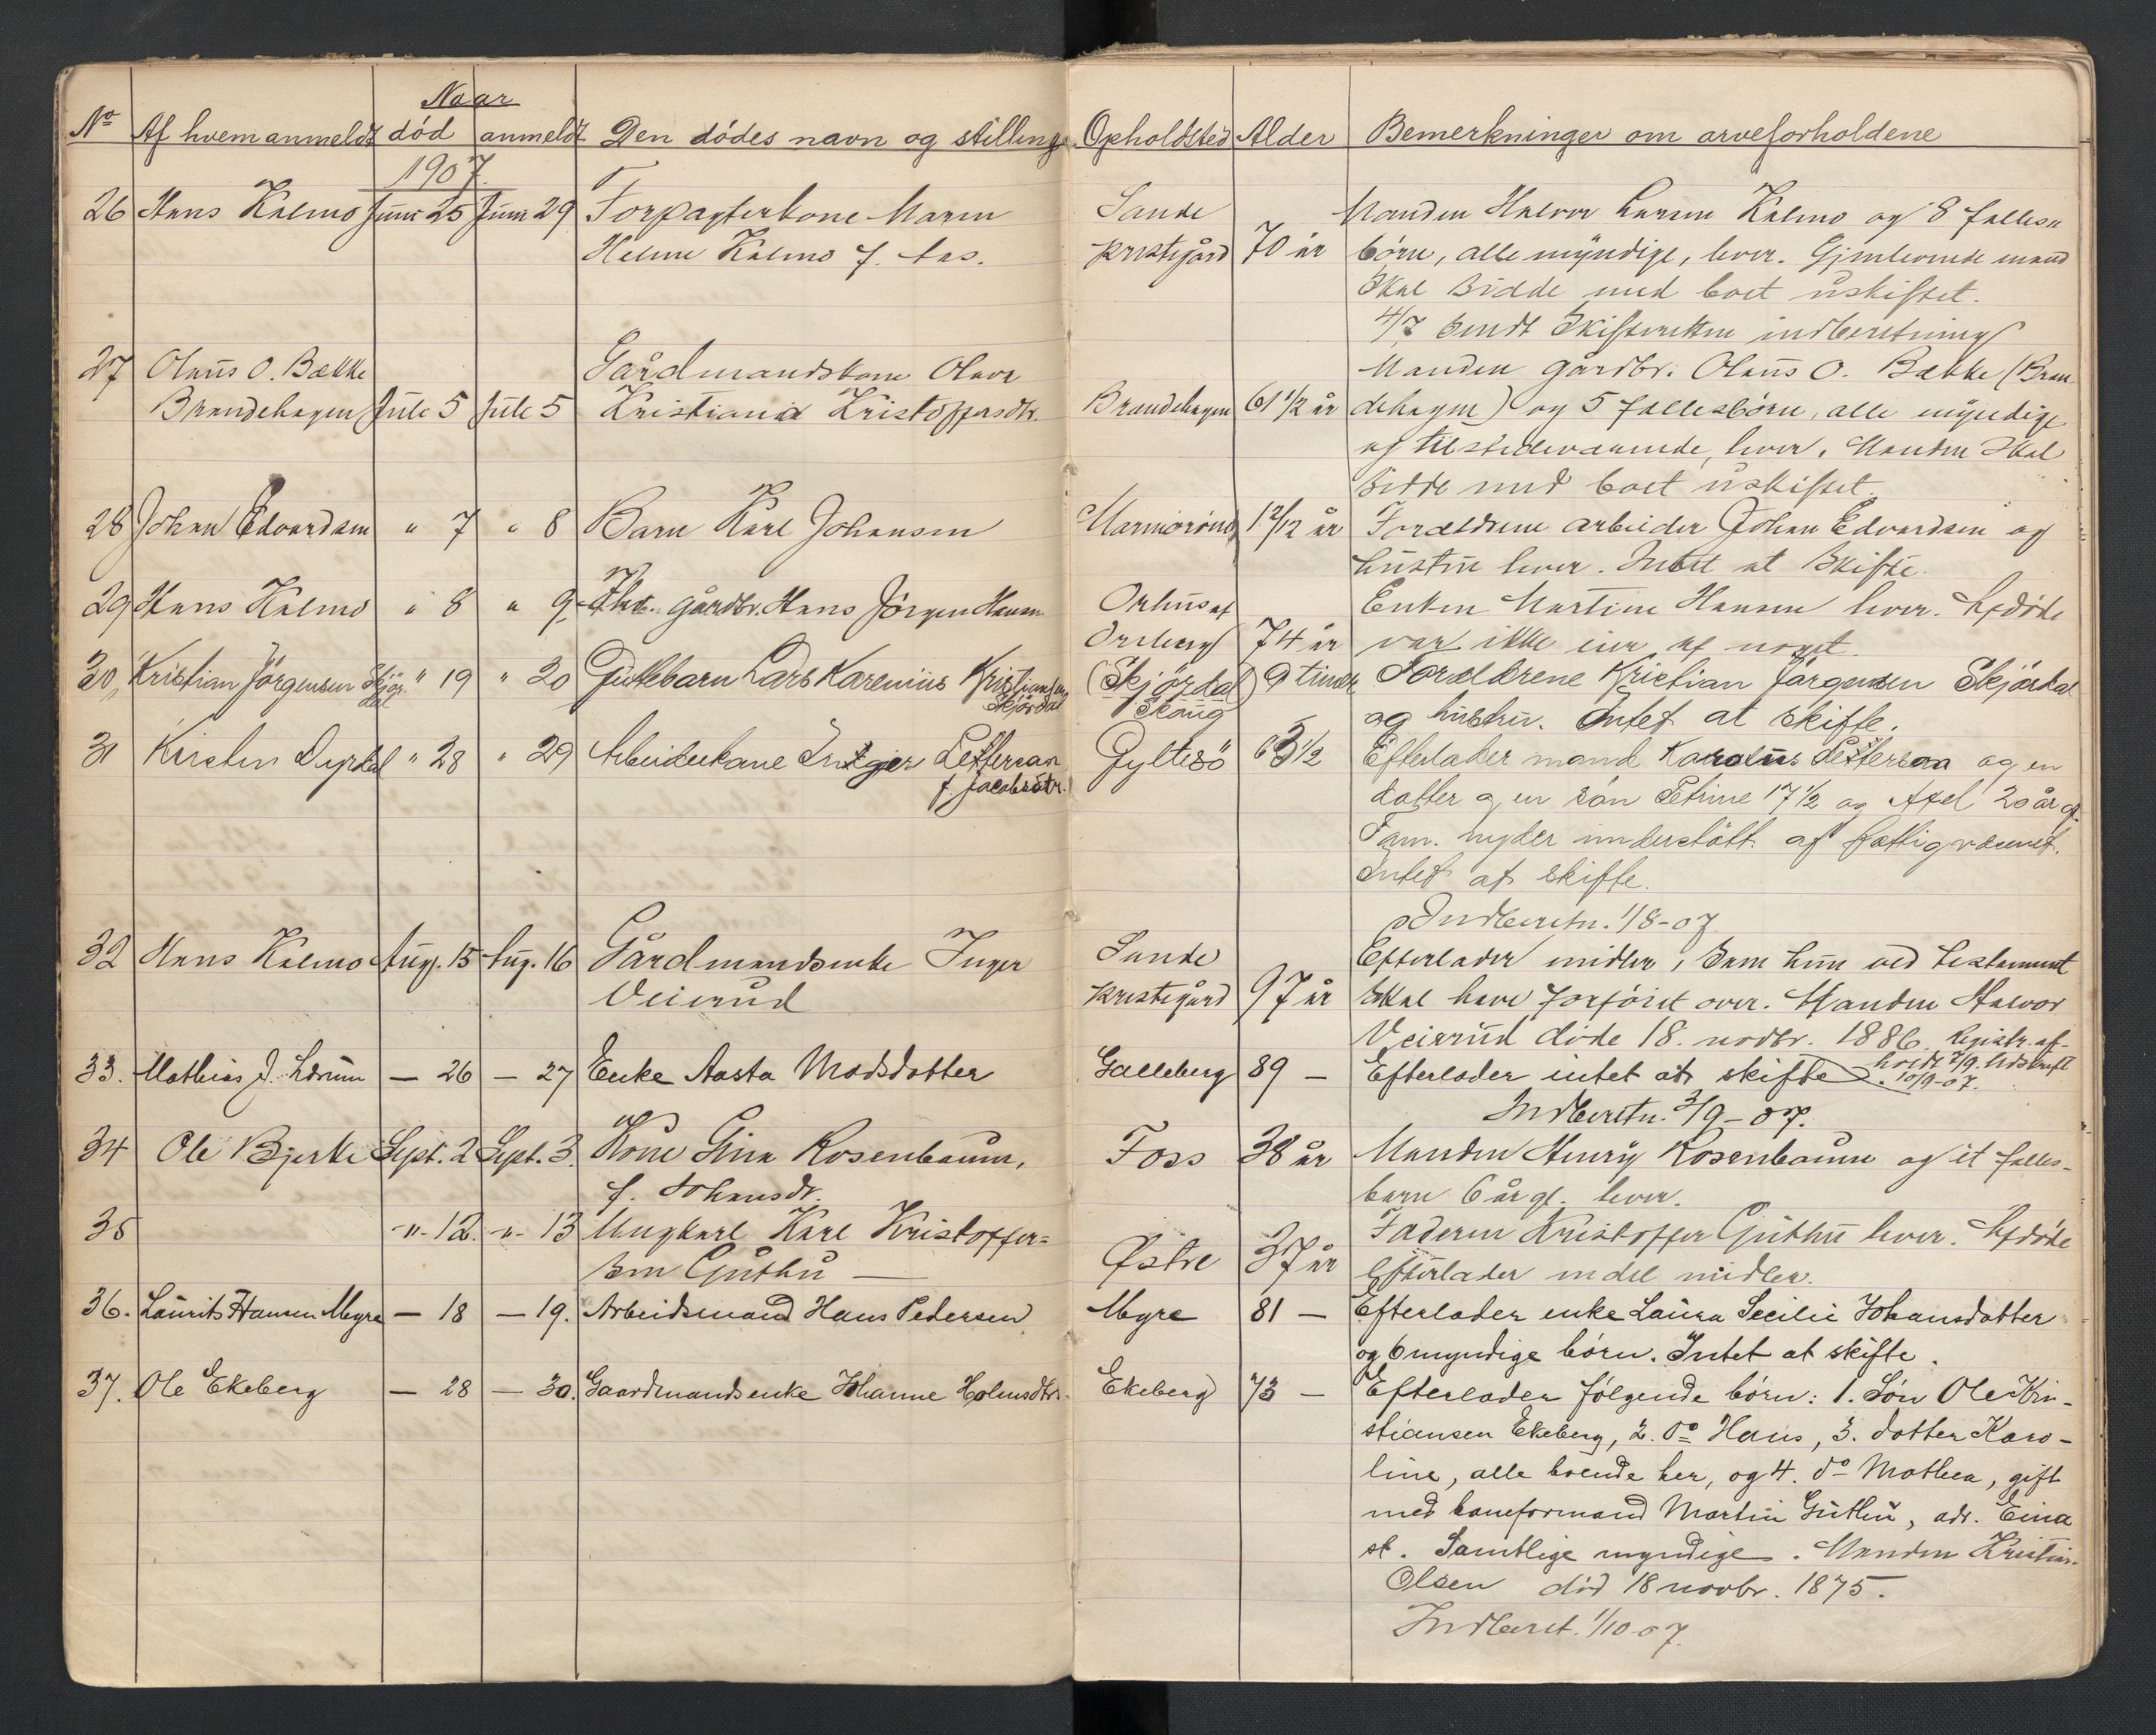 Naar
No Af hvem anmeldt død anmeldt Den dødes navn og stilling Opholdsted Alder Bemerkninger om arveforholdene
1907
26 Hans Kalmo Juni 25 Juni 29 Forpagterkone Maren
Helene Kalmo f. Aas.
Sande
prestegård 70 år
Manden Halvor Larsen Kalmo og 8 fælles-
børn, alle myndige, lever. Gjenlevende mand
skal sidde med boet uskiftet.
4/7 sendt Skifteretten indberetning
27 Olaus O. Bække
Brandehagen Juli 5 Juli 5
Gårdmandskone Olava
Kristiania Kristoffersdtr.
Brandehagen 61 1/2 år
Manden gårdbr. Olaus O. Bække (Bran-
dehagen) og 5 fællesbørn, alle myndige
og tilstedeværende, lever. Manden skal
sidde med boet uskiftet.
28 Johan Edvardsen " 7 " 8 Barn Karl Johansen
1 2/12 år Forældrene arbeider Johan Edvardsen og
hustru lever. Intet at skifte.
29 Hans Kalmo " 8 " 9 gårdbr. Hans Jørgen Hansen
Orhus af
Oreberg 74 år
Enken Martine Hansen lever. Afdøde
var ikke eier af noget.
30 Kristian Jörgensen Skjör-
dal " 19 " 20 Guttebarn Lars Karenius Kristiansen
Skjördal
(Skjördal)
Skaug 9 timer
Forældrene Kristian Jörgensen Skjördal
og hustru. Intet at skifte.
31 Kirsten Dyrdal " 28 " 29 Arbeiderkone Inger Pettersen
f. Jacobsdtr.
Gyltesö 63 1/2
Efterlader mand Karolius Pettersen og en
datter og en sön Petrine 17 1/2 og Axel 20 år gl.
Fam. nyder understött. af fattigvæsenet.
Intet at skifte.
Indberetn. 1/8-07.
32 Hans Kalmo Aug. 15 Aug. 16 Gårdmandsenke Inger
Veierud
Sande
prestegård 97 år
Efterlader midler, som hun ved testament
skal have forføiet over. Manden Halvor
Veierud døde 18. novbr. 1886. Registr. af-
holdt 7/9. Udskrift
10/9-07.
33. Mathias J. Lærum — 26 — 27 Enke Aasta Madsdatter
Galleberg 89 — Efterlader intet at skifte
Indberetn. 3/9-07.
34 Ole Bjerke Sept. 2 Sept. 3. Kone Gina Rosenbaum,
f. Johansdr.
Foss 38 år Manden Henry Rosenbaum og et fælles-
barn 6 år gl. lever.
35 -"- 12. -"- 13 Ungkarl Karl Kristoffer-
sen Guthu —
Østre 37 år
Faderen Kristoffer Guthu lever. Afdøde
efterlader endel midler.
36. Laurits Hansen Myre — 18 — 19. Arbeidsmand Hans Pedersen
Myre 81 — Efterlader enke Laura Secilie Johansdatter
og 6 myndige børn. Intet at skifte.
37. Ole Ekeberg — 28 — 30. Gaardmandsenke Johanne Holmsdtr.
Ekeberg 73 — Efterlader følgende børn: 1. Søn Ole Kri-
stiansen Ekeberg, 2. do Hans, 3. datter Karo-
line, alle boende her, og 4. do Mathea, gift
med baneformand Martin Guthu, adr. Eina
st. Samtlige myndige. Manden Kristian
Olsen død 18 novbr. 1875.
Indberet. 1/10-07.